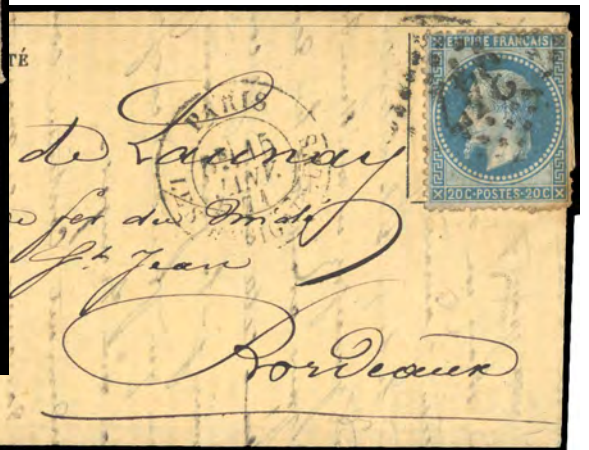 TÉ
EMPIRE FRANÇAIS
20C·POSTES·20C
PARIS
15
JANV.
71
de Launay
de fer du Midi
St Jean
Bordeaux